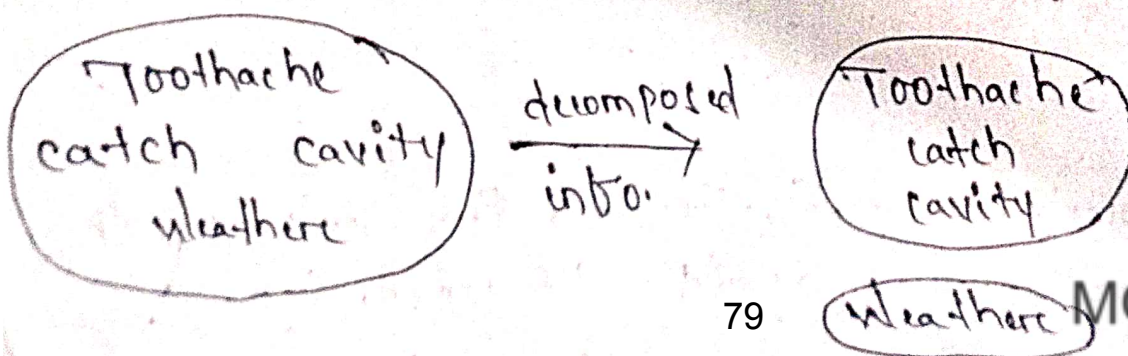 Toothache
catch cavity
Weathere
decomposed
into.
Toothache
catch
cavity
Weathere
79